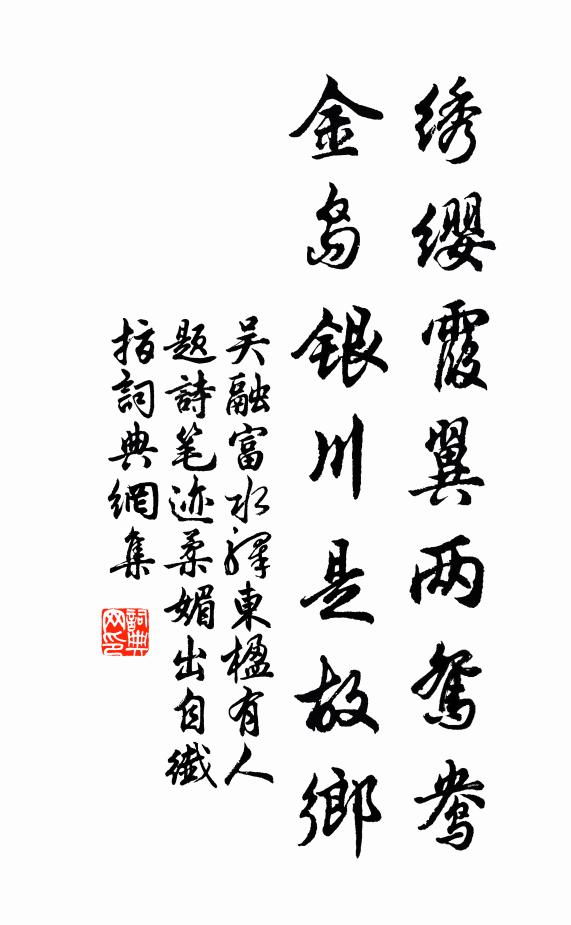 绣缨霞翼两鸳鸯
金岛银川是故鄉
吴融富水驛東楹有人
题詩笔迹柔媚出自纖
指詞典網集
詞典網印